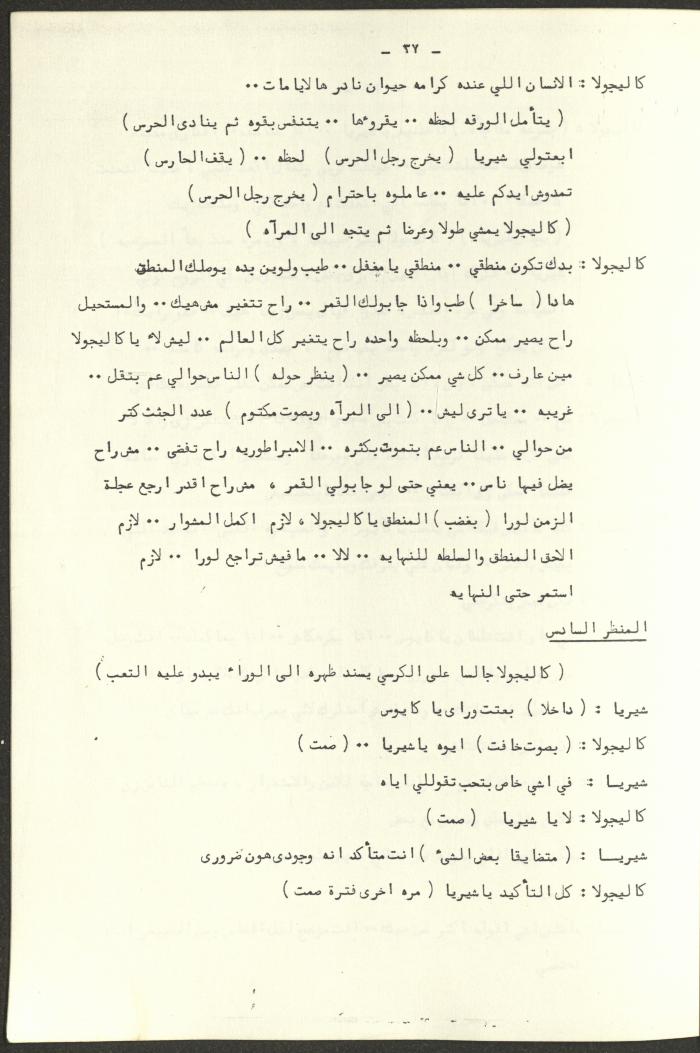 - ٣٧ -
كاليجولا : الانسان اللي عنده كرامه حيوان نادر هالايامات ..
( يتأمل الورقه لحظه .. يقروءها .. يتنفس بقوه ثم ينادى الحرس )
ابعتولي شيريا ( يخرج رجل الحرس ) لحظه .. ( يقف الحارس )
تمدوش ايدكم عليه .. عاملوه باحترام ( يخرج رجل الحرس )
( كاليجولا يمشي طولا وعرضا ثم يتجه الى المرآه )
كاليجولا : بدك تكون منطقي .. منطقي يا مغفل .. طيب ولوين بده يوصلك المنطق
هادا ( ساخرا ) طب واذا جابولك القمر .. راح تتغير مش هيك .. والمستحيل
راح يصير ممكن .. وبلحظه واحده راح يتغير كل العالم .. ليش لاء يا كاليجولا
مين عارف .. كل شي ممكن يصير .. ( ينظر حوله ) الناس حوالي عم بتقل ..
غريبه .. يا ترى ليش .. ( الى المرآه وبصوت مكتوم ) عدد الجثث كتر
من حوالي .. الناس عم بتموت بكثره .. الامبراطوريه راح تفضى .. مش راح
يضل فيها ناس .. يعني حتى لو جابولي القمر ، مش راح اقدر ارجع عجلة
الزمن لورا ( بغضب ) المنطق يا كاليجولا ، لازم اكمل المشوار .. لازم
الاحق المنطق والسلطه للنهايه .. لالا .. ما فيش تراجع لورا .. لازم
استمر حتى النهايه
المنظر السادس
( كاليجولا جالسا على الكرسي يسند ظهره الى الوراء يبدو عليه التعب )
شيريا : ( داخلا ) بعتت وراى يا كايوس
كاليجولا : ( بصوت خافت ) ايوه يا شيريا .. ( صمت )
شيريـا : في اشي خاص بتحب تقوللي اياه
كاليجولا : لا يا شيريا ( صمت )
شيريـا : ( متضايقا بعض الشيء ) انت متأكد انه وجودى هون ضرورى
كاليجولا : كل التأكيد يا شيريا ( مره اخرى فترة صمت )